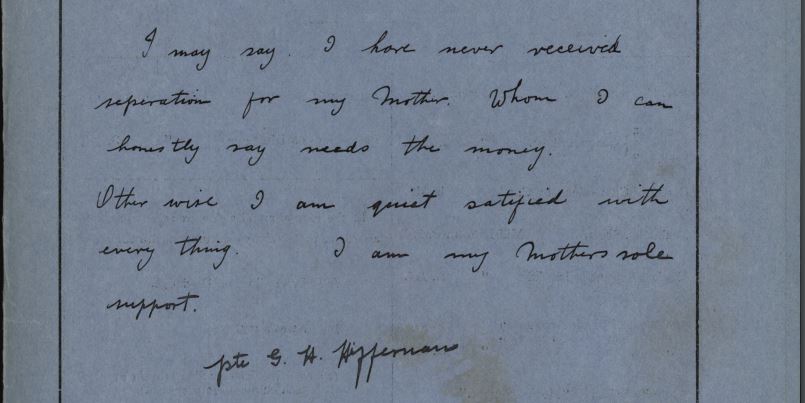 I may say. I have never received
seperation for my Mother. Whom I can
honestly say needs the money.
Other wise I am quiet satified with
every thing. I am my Mothers sole
support.
pte G. H. Hiffernan